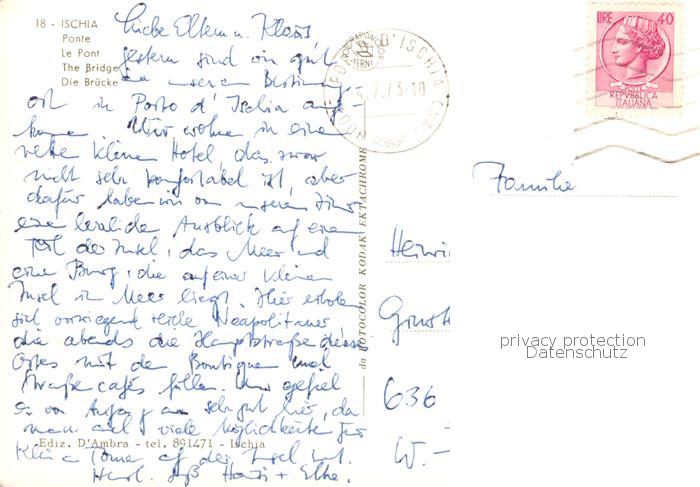 18 - ISCHIA
Ponte
Le Pont
The Bridge
Die Brücke
Liebe Eltern u. Klaus
gestern sind wir gut
an unserem Bestimm-
ort in Porto d'Ischia ange-
komm. Wir wohne in eine
nette kleine Hotel, das zwar
nicht sehr komfortabel ist, aber
dafür haben wir von unserem Zimmer
eine herrliche Ausblick auf einen
Teil der Insel, das Meer und
eine Burg, die auf einer kleinen
Insel im Meer liegt. Hier erholen
sich vorwiegend reiche Neapolitaner
die abends die Hauptstraße dieses
Ortes mit den Boutiquen und
Straßencafés füllen. Uns gefiel
es von Anfang an sehr gut hier, da
man auch viele Möglichkeiten für
kleine Touren auf der Insel hat.
Herzl. Grüße Hansi + Elke.
Ediz. D'Ambra - tel. 891471 - Ischia
da FOTOCOLOR KODAK EKTACHROME
D'ISCHIA
7.73-10
LIRE 40
POSTE
REPVBBLICA
ITALIANA
Familie
Heinri
636
W.-
privacy protection
Datenschutz